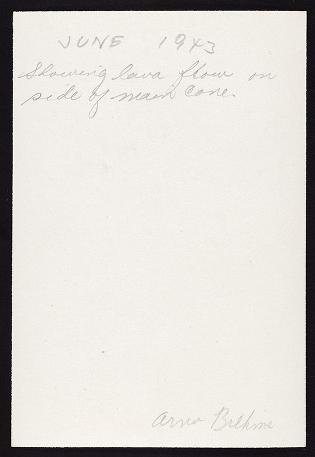 JUNE 1943
Showing lava flow on
side of main cone.
Arno Brehme